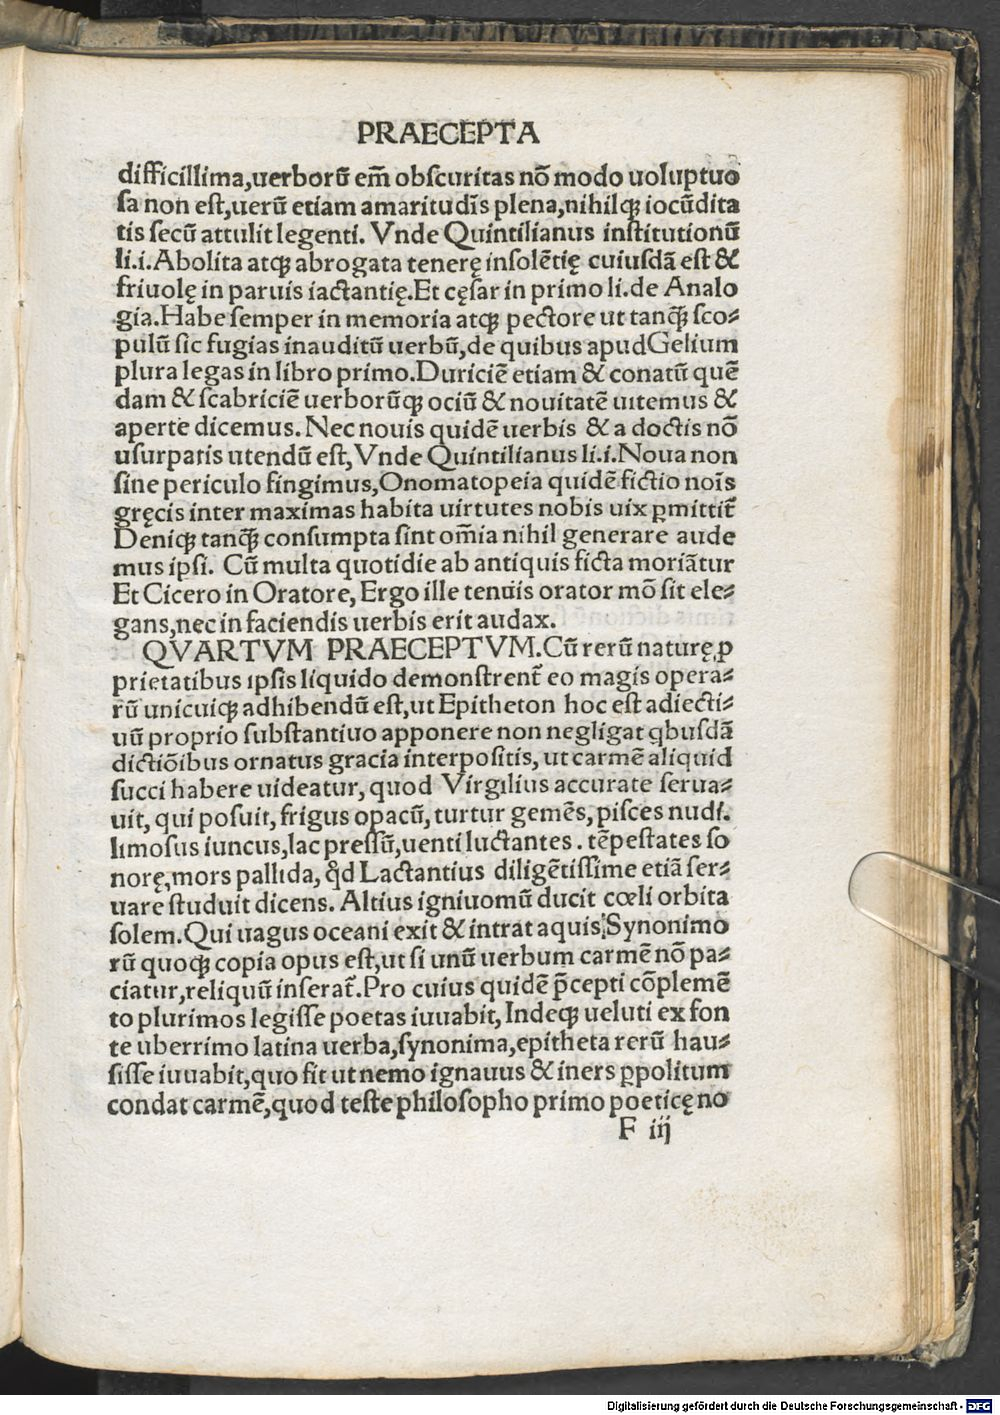 PRAECEPTA
difficillima,uerborū em̄ obscuritas nō modo uoluptuo
sa non est,uerū etiam amaritudīs plena,nihilqꝫ iocūdita
tis secū attulit legenti. Vnde Quintilianus institutionū
li.i.Abolita atqꝫ abrogata tenerę insolētię cuiusdā est &
friuolę in paruis iactantię.Et cęsar in primo li.de Analo
gia.Habe semper in memoria atqꝫ pectore ut tanqꝫ̄ sco⸗
pulū sic fugias inauditū uerbū,de quibus apud Gelium
plura legas in libro primo.Duriciē etiam & conatū quē
dam & scabriciē uerborūqꝫ ociū & nouitatē uitemus &
aperte dicemus. Nec nouis quidē uerbis & a doctis nō
usurpatis utendū est,Vnde Quintilianus li.i.Noua non
sine periculo fingimus,Onomatopeia quidē fictio noīs
gręcis inter maximas habita uirtutes nobis uix ꝑmittit̄
Deniqꝫ tanqꝫ̄ consumpta sint om̄ia nihil generare aude
mus ipsi. Cū multa quotidie ab antiquis ficta moriātur
Et Cicero in Oratore, Ergo ille tenuis orator mō sit ele⸗
gans,nec in faciendis uerbis erit audax.
QVARTVM PRAECEPTVM.Cū rerū naturę,ꝓ
prietatibus ipsis liquido demonstrent̄ eo magis opera⸗
rū unicuiqꝫ adhibendū est,ut Epitheton hoc est adiecti⸗
uū proprio substantiuo apponere non negligat qbusdā
dictiōibus ornatus gracia interpositis, ut carmē aliquid
succi habere uideatur, quod Virgilius accurate serua⸗
uit, qui posuit, frigus opacū, turtur gemēs, pisces nudi.
limosus iuncus,lac pressū,uenti luctantes . tēpestates so
norę,mors pallida, qd̄ Lactantius diligētissime etiā ser⸗
uare studuit dicens. Altius igniuomū ducit cœli orbita
solem.Qui uagus oceani exit & intrat aquis.Synonimo
rū quoqꝫ copia opus est,ut si unū uerbum carmē nō pa⸗
ciatur,reliquū inserat̄.Pro cuius quidē p̄cepti cōplemē
to plurimos legisse poetas iuuabit, Indeqꝫ ueluti ex fon
te uberrimo latina uerba,synonima,epitheta rerū hau⸗
sisse iuuabit,quo fit ut nemo ignauus & iners ꝑpolitum
condat carmē,quod teste philosopho primo poeticę no
F iij
Digitalisierung gefördert durch die Deutsche Forschungsgemeinschaft - DFG